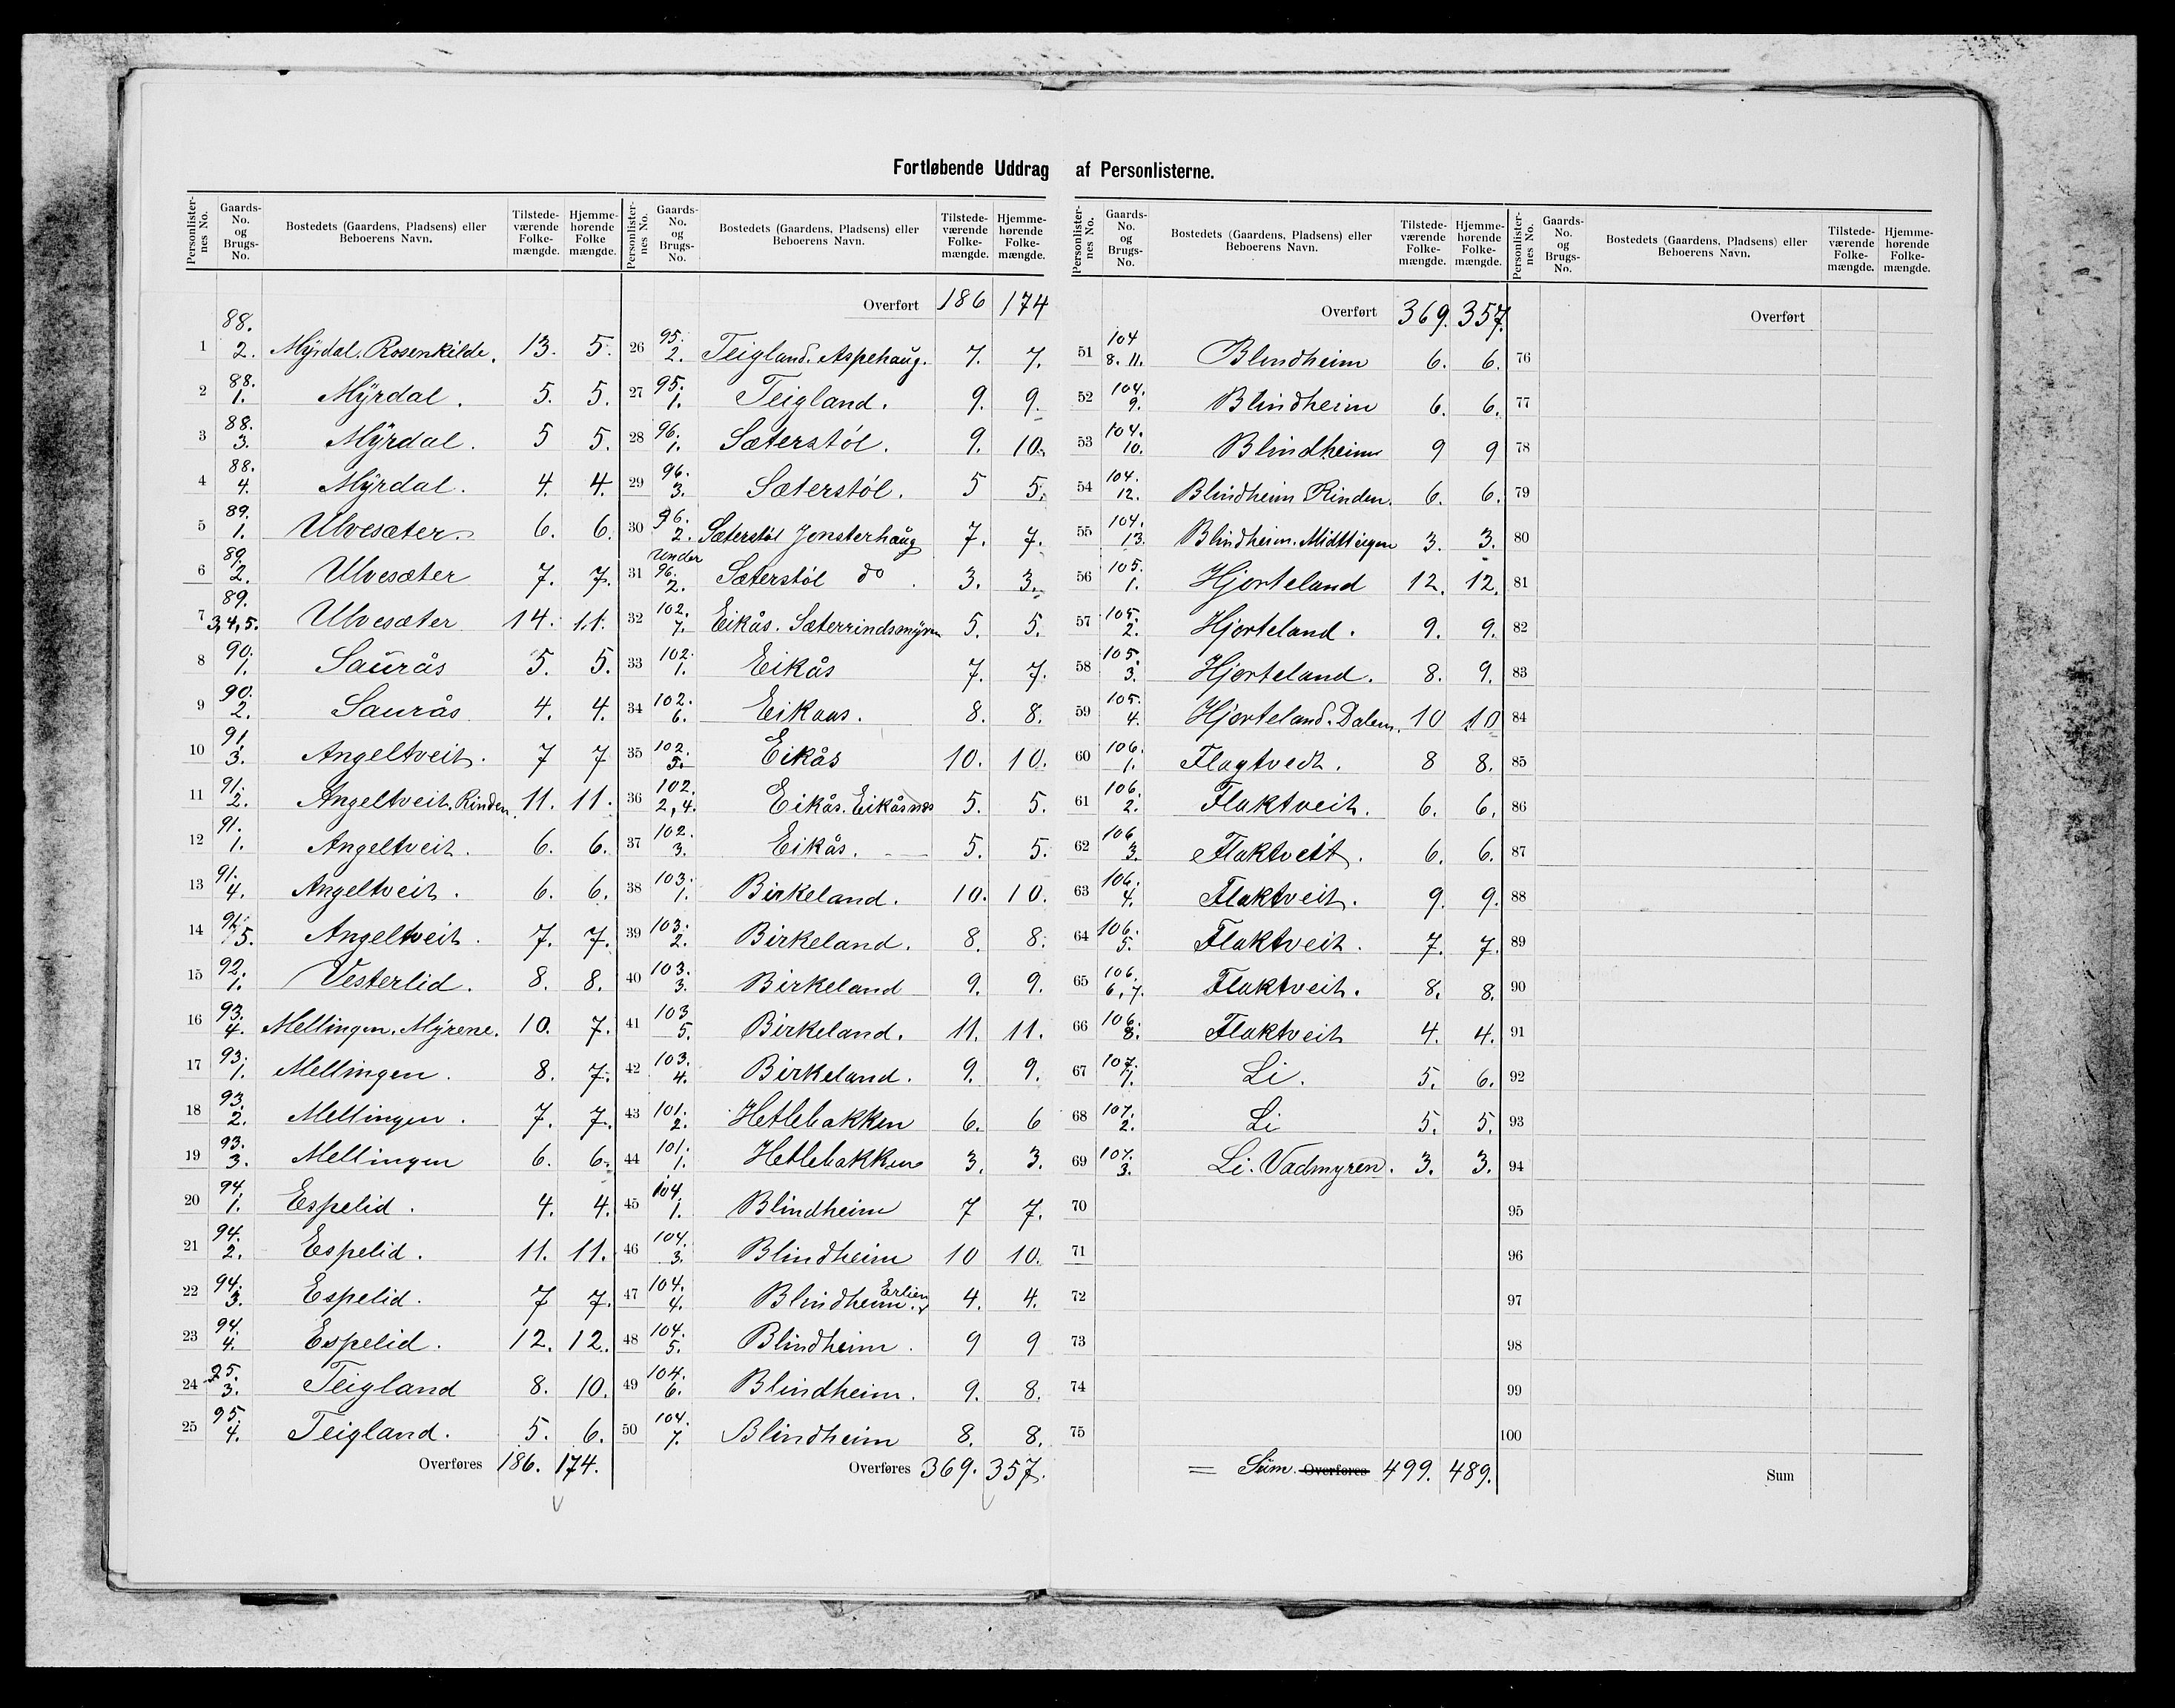 Fortløbende Uddrag af Personlisterne.
Personlisternes No. | Gaards-No. og Brugs-No. | Bostedets (Gaardens, Pladsens) eller Beboerens Navn. | Tilstedeværende Folkemængde. | Hjemmehørende Folkemængde.
1 | 88. 2. | Mÿrdal. Rosenkilde. | 13. | 5.
2 | 88. 1. | Mÿrdal. | 5. | 5.
3 | 88. 3. | Mÿrdal. | 5 | 5.
4 | 88. 4. | Mÿrdal. | 4. | 4.
5 | 89. 1. | Ulvesæter. | 6. | 6.
6 | 89. 2. | Ulvesæter | 7. | 7.
7 | 89. 3,4,5. | Ulvesæter | 14. | 11.
8 | 90. 1. | Saurås | 5. | 5.
9 | 90. 2. | Saurås | 4. | 4.
10 | 91. 3. | Angeltveit. | 7 | 7
11 | 91. 2. | Angeltveit. Rinden. | 11. | 11.
12 | 91. 1. | Angeltveit. | 6. | 6.
13 | 91. 4. | Angeltveit. | 6. | 6.
14 | 91. 5. | Angeltveit. | 7. | 7.
15 | 92. 1. | Vesterlid. | 8. | 8.
16 | 93. 4. | Mellingen. Mÿrene. | 10. | 7.
17 | 93. 1. | Mellingen. | 8. | 7.
18 | 93. 2. | Mellingen. | 7. | 7.
19 | 93. 3. | Mellingen | 6. | 6.
20 | 94. 1. | Espelid. | 4. | 4.
21 | 94. 2. | Espelid. | 11. | 11.
22 | 94. 3. | Espelid. | 7 | 7.
23 | 94. 4. | Espelid. | 12. | 12.
24 | 95. 3. | Teigland | 8. | 10.
25 | 95. 4. | Teigland. | 5. | 6.
Overføres 186. 174.
Personlisternes No. | Gaards-No. og Brugs-No. | Bostedets (Gaardens, Pladsens) eller Beboerens Navn. | Tilstedeværende Folkemængde. | Hjemmehørende Folkemængde.
Overført 186 174
26 | 95. 2. | Teigland. Aspehaug. | 7. | 7.
27 | 95. 1. | Teigland. | 9. | 9.
28 | 96. 1. | Sæterstøl. | 9. | 10.
29 | 96. 3. | Sæterstøl. | 5 | 5.
30 | 96. 2. | Sæterstøl Jonsterhaug | 7. | 7.
31 | under 96. 2. | Sæterstøl do. | 3. | 3.
32 | 102. 7. | Eikås. Sæterrindsmÿren | 5. | 5.
33 | 102. 1. | Eikås | 7. | 7.
34 | 102. 6. | Eikaas. | 8. | 8.
35 | 102. 5. | Eikås | 10. | 10.
36 | 102. 2,4. | Eikås. Eikåsnes | 5. | 5.
37 | 102. 3. | Eikås. | 5. | 5.
38 | 103. 1. | Birkeland. | 10. | 10.
39 | 103. 2. | Birkeland. | 8. | 8.
40 | 103. 3. | Birkeland | 9. | 9.
41 | 103 5. | Birkeland. | 11. | 11.
42 | 103. 4. | Birkeland. | 9. | 9.
43 | 101. 2. | Hetlebakken | 6. | 6
44 | 101. 1. | Hetlebakken | 3. | 3.
45 | 104. 1. | Blindheim | 7 | 7.
46 | 104. 3. | Blindheim | 10 | 10.
47 | 104. 4. | Blindheim. Erlien | 4. | 4.
48 | 104. 5. | Blindheim. | 9 | 9
49 | 104. 6. | Blindheim. | 9. | 8.
50 | 104. 7. | Blindheim | 8. | 8.
Overføres 369. 357.
Personlisternes No. | Gaards-No. og Brugs-No. | Bostedets (Gaardens, Pladsens) eller Beboerens Navn. | Tilstedeværende Folkemængde. | Hjemmehørende Folkemængde.
Overført 369. 357.
51 | 104 8. 11. | Blindheim | 6. | 6.
52 | 104. 9. | Blindheim | 6. | 6.
53 | 104. 10. | Blindheim | 9 | 9
54 | 104. 12. | Blindheim Rinden. | 6. | 6.
55 | 104. 13. | Blindheim. Midtteigen | 3. | 3.
56 | 105. 1. | Hjorteland | 12. | 12.
57 | 105. 2. | Hjorteland. | 9. | 9.
58 | 105. 3. | Hjorteland. | 8. | 9.
59 | 105. 4. | Hjorteland. Dalen. | 10 | 10
60 | 106. 1. | Flagtvedt. | 8 | 8.
61 | 106. 2. | Flaktveit. | 6. | 6.
62 | 106 3. | Flaktveit. | 6. | 6.
63 | 106. 4. | Flaktveit. | 9. | 9.
64 | 106. 5. | Flaktveit. | 7. | 7.
65 | 106. 6,7. | Flaktveit. | 8. | 8.
66 | 106. 8. | Flaktveit | 4. | 4.
67 | 107. 1. | Li. | 5. | 6.
68 | 107. 2. | Li | 5. | 5.
69 | 107. 3. | Li. Vadmyren. | 3. | 3.
70
71
72
73
74
75
= Sum. Overføres 499. 489.
Personlisternes No. | Gaards-No. og Brugs-No. | Bostedets (Gaardens, Pladsens) eller Beboerens Navn. | Tilstedeværende Folkemængde. | Hjemmehørende Folkemængde.
Overført
76
77
78
79
80
81
82
83
84
85
86
87
88
89
90
91
92
93
94
95
96
97
98
99
100
Sum